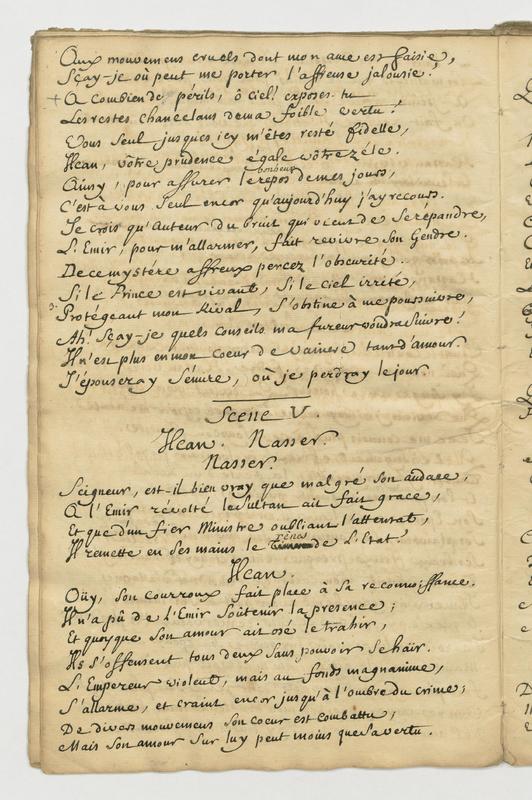 Aux mouvemens cruels dont mon ame est saisie,
Sçay-je où peut me porter l'affreuse jalousie!
+ A combien de périls, ô ciel! exposes-tu
Les restes chancelans de ma foible vertu!
Vous seul jusques icy m'êtes resté fidelle,
Hcan, vôtre prudence égale vôtre zéle.
Ainsy, pour assurer le repos de mes jours,
bonheur
C'est à vous seul encor qu'aujourd'huy j'ay recours.
Je crois qu'Auteur du bruit qui vient de se répandre,
L'Emir, pour m'allarmer, fait revivre son Gendre.
De ce mystére affreux percez l'obscurité.
Si le Prince est vivant, si le ciel irrité,
Protégeant mon Rival, s'obstine à me poursuivre,
Ah! Sçay-je quels conseils ma fureur voudra suivre!
Il n'est plus en mon coeur de vaincre tant d'amour.
J'épouseray Sémire, où je perdray le jour.
Scene V.
Hcan. Nasser.
Nasser.
Seigneur, est-il bien vray que malgré son audace,
A l'Emir révolté le Sultan ait fait grace,
Et que d'un fier Ministre oubliant l'attentat,
Il remette en ses mains le de L'Etat?
rênes
Hcan.
Oüy, son courroux fait place à sa reconnoissance.
Il n'a pû de L'Emir soûtenir la présence;
Et quoyque son amour ait osé le trahir,
Ils s'offensent tous deux sans pouvoir se haïr.
L'Empereur violent, mais au fonds magnanime,
S'allarme, et craint encor jusqu'à l'ombre du crime;
De divers mouvemens son coeur est combattu,
Mais son amour sur luy peut moins que sa vertu.